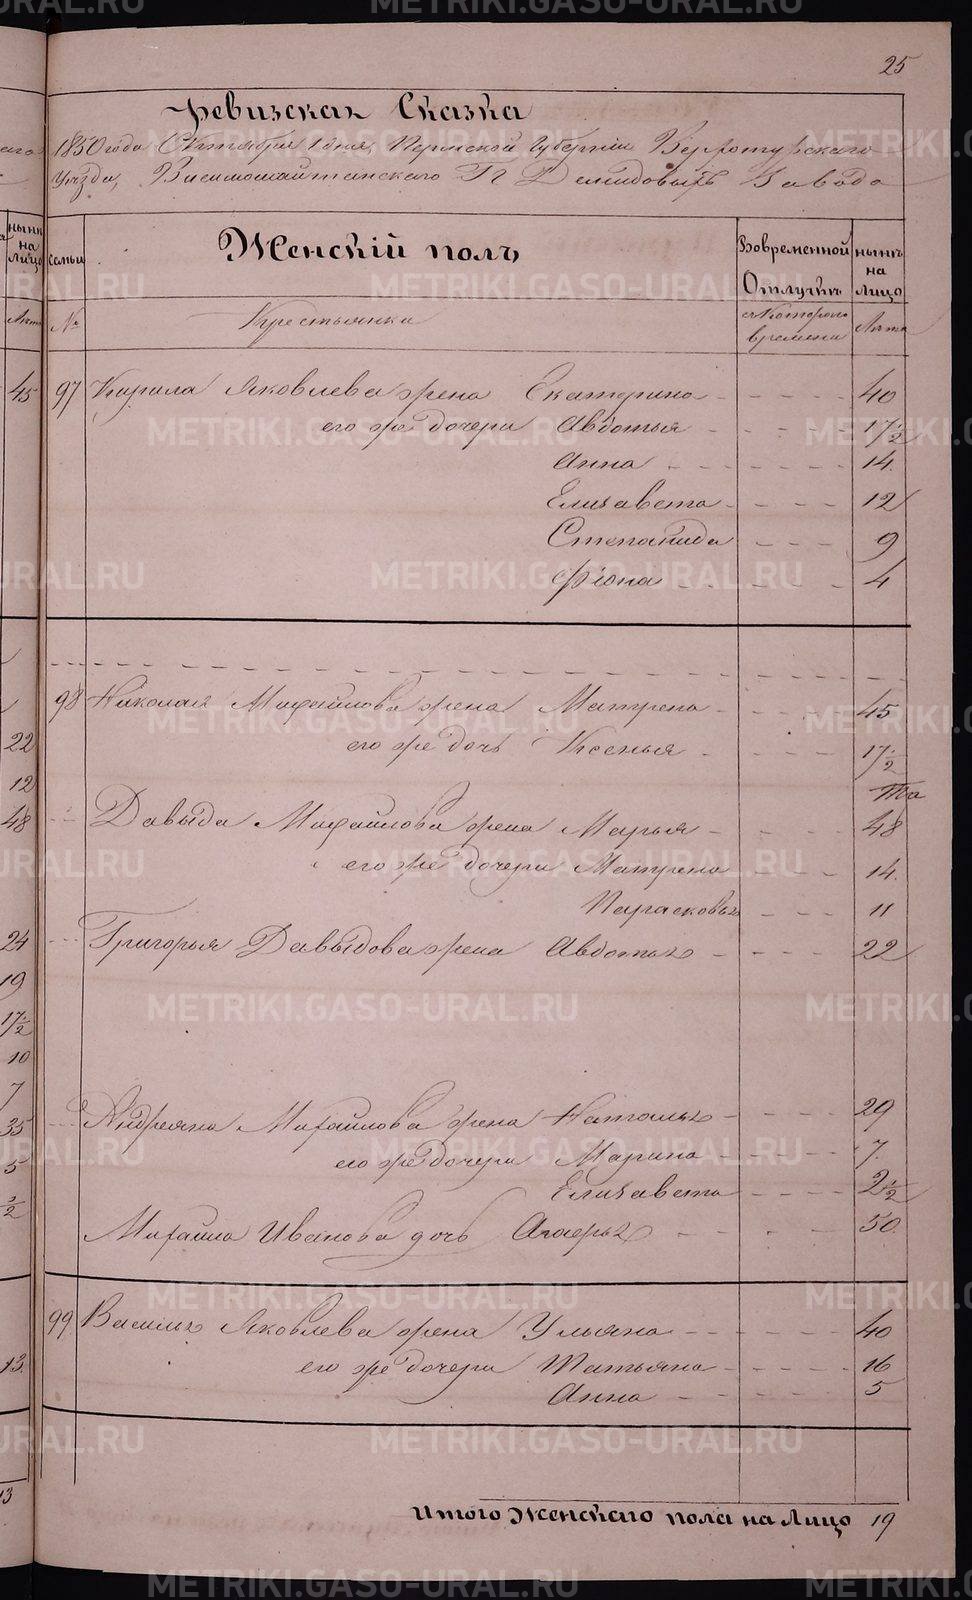 25
Ревизская Сказка
1850 года Октября 1 дня, Пермской Губернии Верхотурскаго
Уезда, Висимошайтанскаго Гг Демидовыхъ Завода
семьи Женскій полъ Вовременной Отлучкѣ нынѣ на Лицо
№ Крестьянки съ Котораго времени Лѣта
97 Кирила Яковлева жена Екатерина 40
его же дочери Авдотья 17 1/2
Анна 14
Елизавета 12
Степанида 9
Фіона 4
98 Николая Михайлова жена Матрена 45
его же дочь Ксенья 17 1/2
Давыда Михайлова жена Марья 48
его же дочери Матрена 14
Парасковья 11
Григорья Давыдова жена Авдотья 22
Андреяна Михайлова жена Наталья 29
его же дочери Марина 7
Елизавета 2 1/2
Михайла Иванова дочь Агафья 50
99 Василья Яковлева жена Ульяна 40
его же дочери Татьяна 16
Анна 5
Итого Женскаго пола на Лицо 19
нынѣ на Лицо
Лѣта
45
22
12
48
24
19
17 1/2
10
7
35
5
1/2
13
13
METRIKI.GASO-URAL.RU